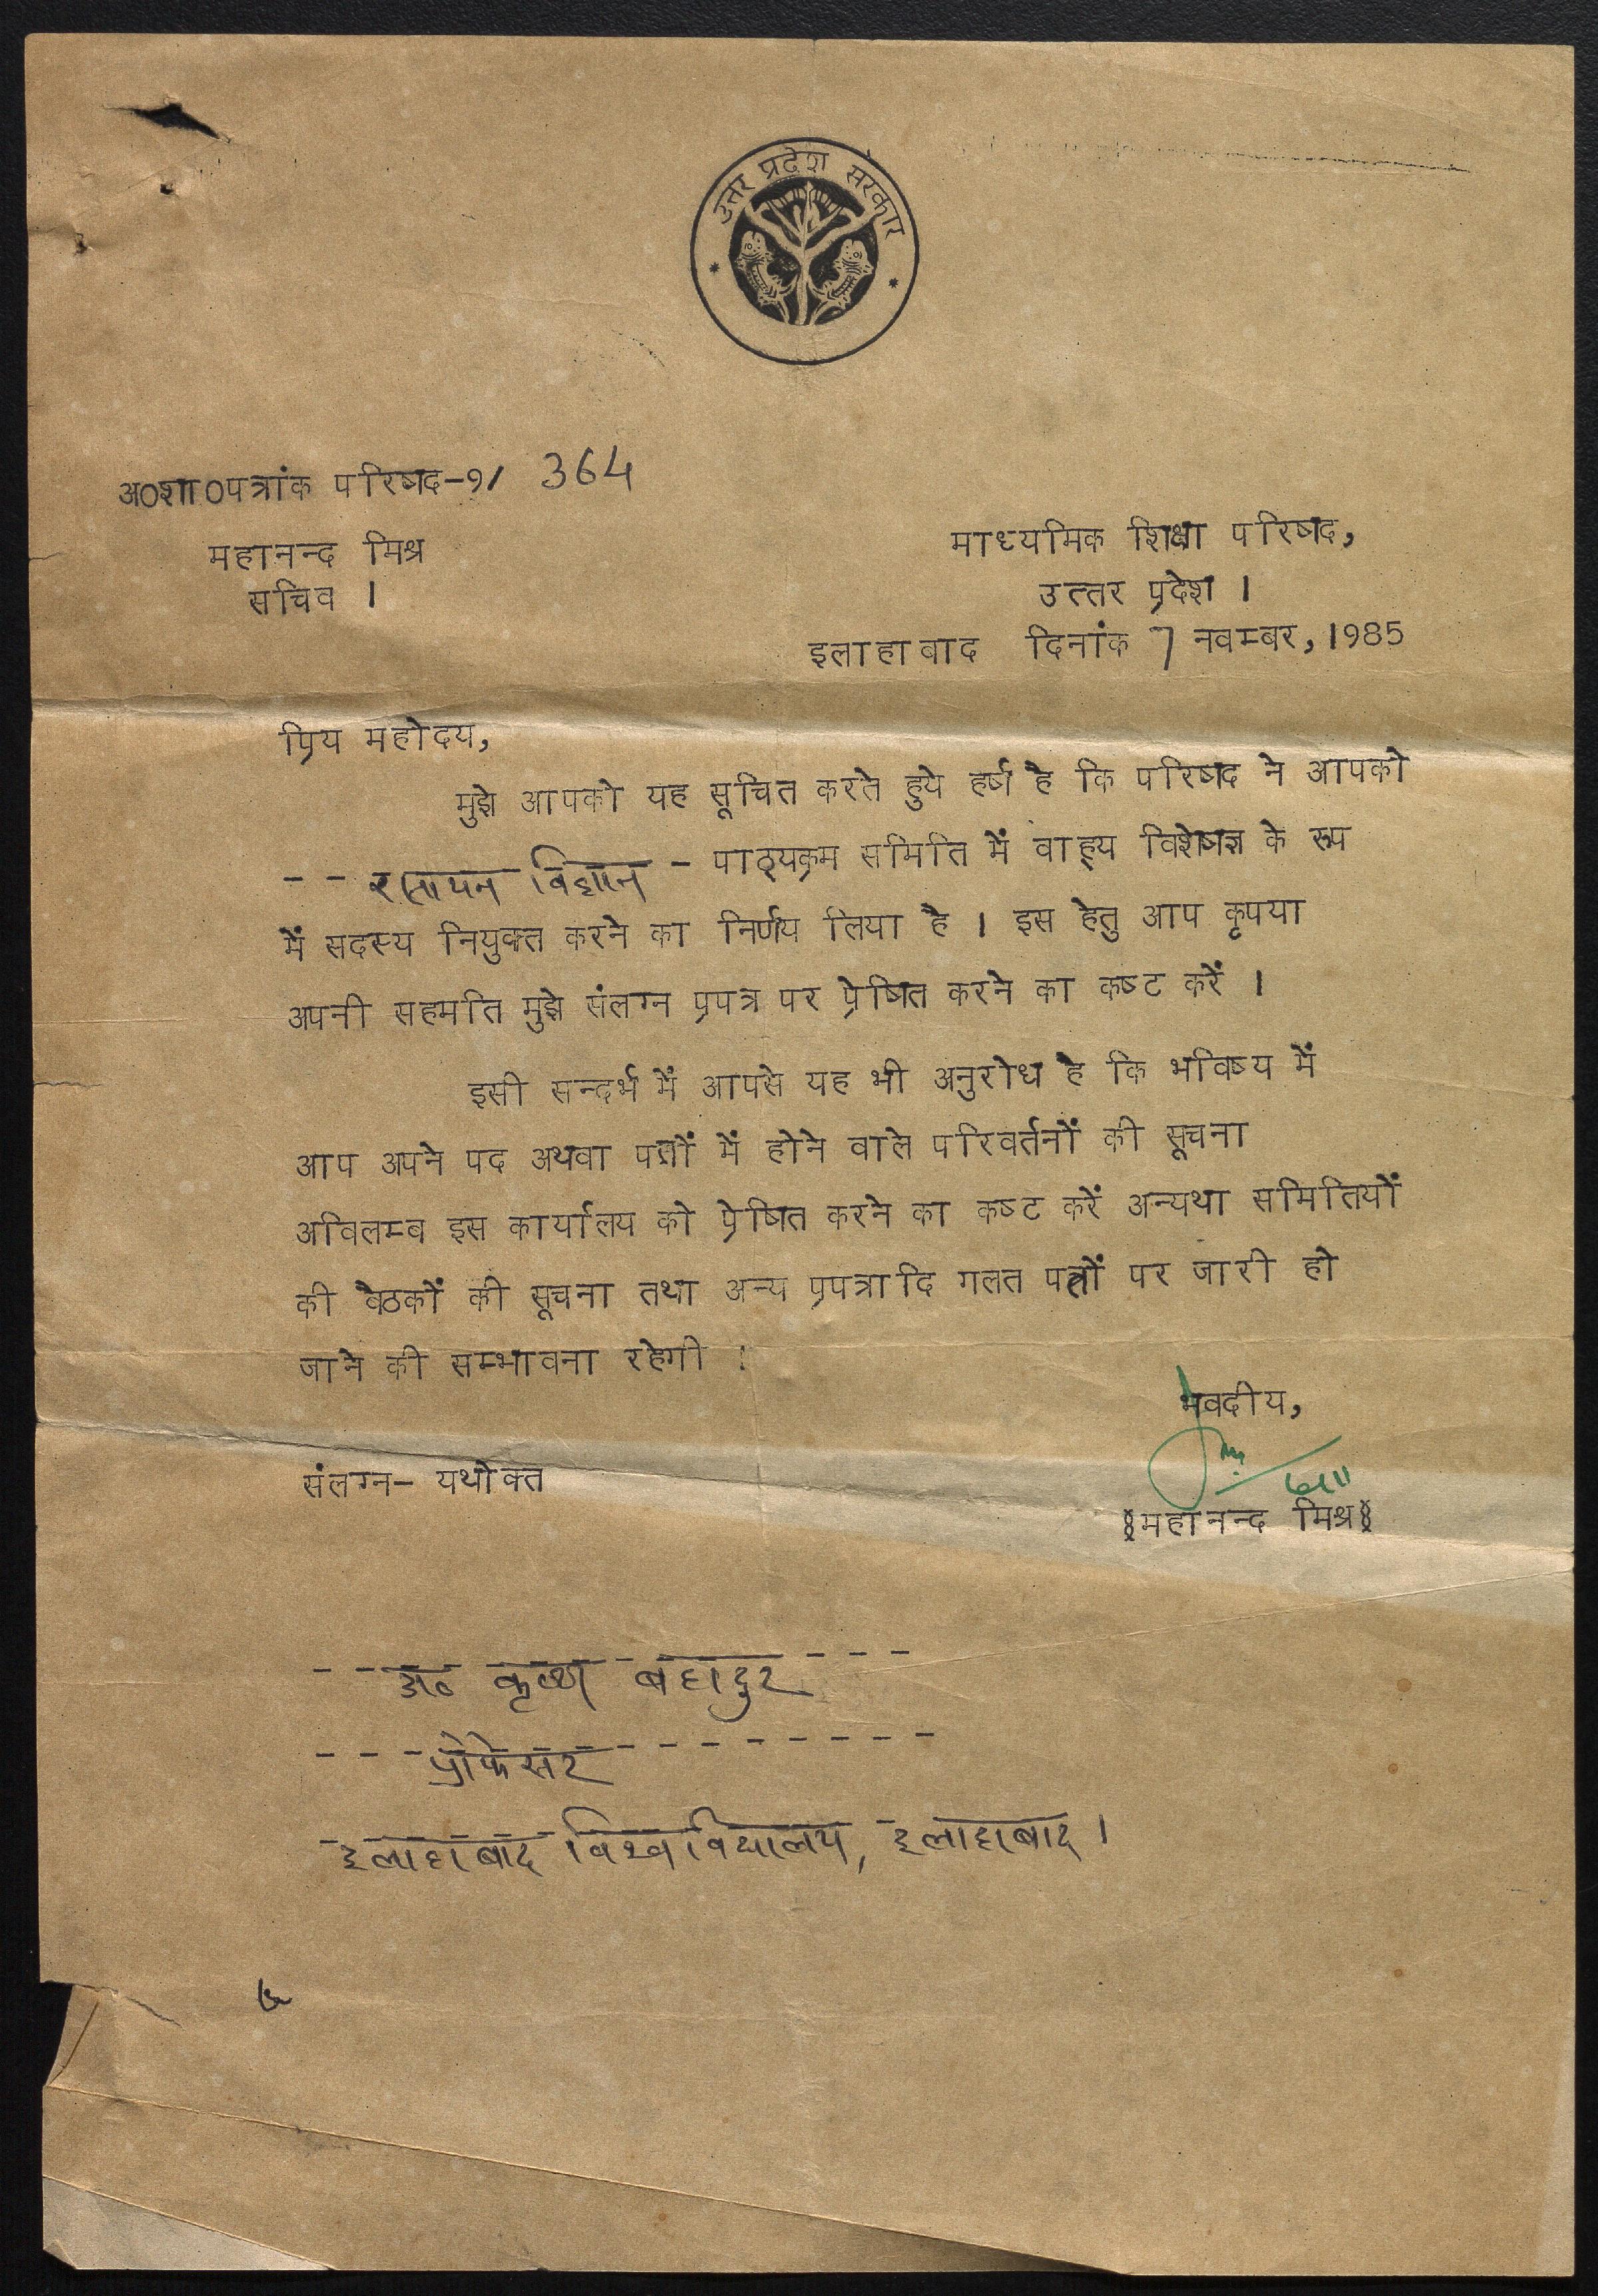 उत्तर प्रदेश सरकार
अ०शा०पत्रांक परिषद-९/ 364
महानन्द मिश्र
सचिव ।
माध्यमिक शिक्षा परिषद,
उत्तर प्रदेश ।
इलाहावाद दिनांक 7 नवम्बर, 1985
प्रिय महोदय,
मुझे आपको यह सूचित करते हुये हर्ष है कि परिषद ने आपको
- - रसायन विज्ञान - पाठ्यक्रम समिति में वाह्य विशेषज्ञ के रूप
में सदस्य नियुक्त करने का निर्णय लिया है । इस हेतु आप कृपया
अपनी सहमति मुझे संलग्न प्रपत्र पर प्रेषित करने का कष्ट करें ।
इसी सन्दर्भ में आपसे यह भी अनुरोध है कि भविष्य में
आप अपने पद अथवा पतों में होने वाले परिवर्तनों की सूचना
अविलम्ब इस कार्यालय को प्रेषित करने का कष्ट करें अन्यथा समितियों
की वैठकों की सूचना तथा अन्य प्रपत्रादि गलत पतों पर जारी हो
जाने की सम्भावना रहेगी ।
भवदीय,
संलग्न- यथोक्त
(महानन्द मिश्र)
डा० कृष्ण बहादुर
प्रोफेसर
इलाहाबाद विश्वविद्यालय, इलाहाबाद ।